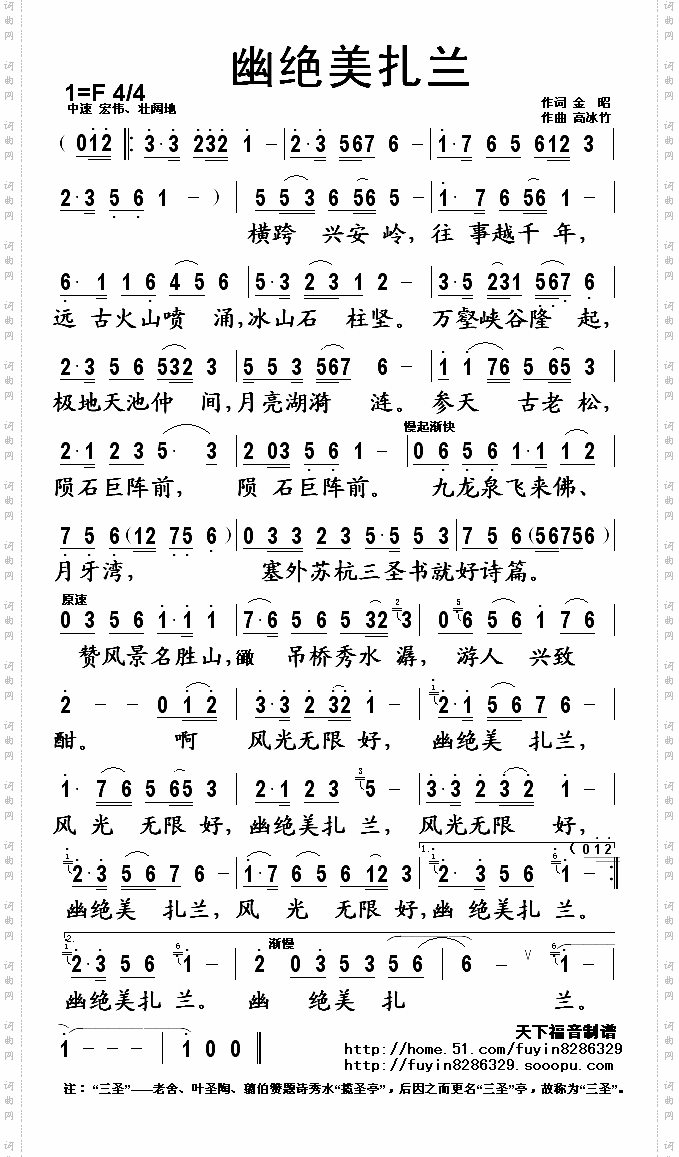 幽绝美扎兰
1=F 4/4
中速 宏伟、壮阔地
作词 金 昭
作曲 高冰竹
( 012 ‖: 3·3 232 1 - | 2·3 567 6 - | 1·7 6 5 612 3 |
2·3 5 6 1 - ) | 5 5 3 6 56 5 - | 1· 7 6 56 1 - |
横跨 兴安 岭, 往 事越千 年,
6· 1 1 6 4 5 6 | 5·3 2 3 1 2 - | 3·5 231 567 6 |
远 古火山喷 涌,冰山石 柱坚。 万壑峡谷隆 起,
2·3 5 6 532 3 | 5 5 3 567 6 - | 1 1 76 5 65 3 |
极地天池仲 间,月亮湖漪 涟。 参天 古老 松,
慢起渐快
2·1 2 3 5· 3 | 2 03 5 6 1 - | 0 6 5 6 1·1 1 2 |
陨石巨阵前, 陨 石巨阵前。 九龙泉飞来佛、
7 5 6 (12 75 6 ) | 0 3 3 2 3 5·5 5 3 | 7 5 6 (56756) |
月牙湾, 塞外苏杭三圣书就好诗篇。
原速
0 3 5 6 1·1 1 | 7·6 5 6 5 32 2 3 | 0 6 5 5 6 1 7 6 |
赞风景名胜山, 吊桥秀水 潺, 游人 兴致
2 - - 0 1 2 | 3·3 2 32 1 - | 1 2·1 5 6 7 6 - |
酣。 啊 风光无限 好, 幽绝美 扎兰,
1· 7 6 5 65 3 | 2·1 2 3 3 5 - | 3·3 2 3 2 1 - |
风 光 无限 好, 幽绝美扎 兰, 风光无限 好,
1 2·3 5 6 7 6 - | 1·7 6 5 6 12 3 | 1. 2·3 5 6 6 1 - ( 012 :‖
幽绝美 扎兰, 风 光 无限 好, 幽 绝美扎 兰。
2. 渐慢
1 2·3 5 6 6 1 - | 2 0 3 5 3 5 6 | 6 - ∨ 6 1 - |
幽绝美扎 兰。 幽 绝美 扎 兰。
1 - - - | 1 0 0 ‖
天下福音制谱
http://home.51.com/fuyin8286329
http://fuyin8286329.sooopu.com
注: “三圣”——老舍、叶圣陶、翦伯赞题诗秀水“揽圣亭”, 后因之而更名“三圣”亭, 故称为“三圣”。
词曲网